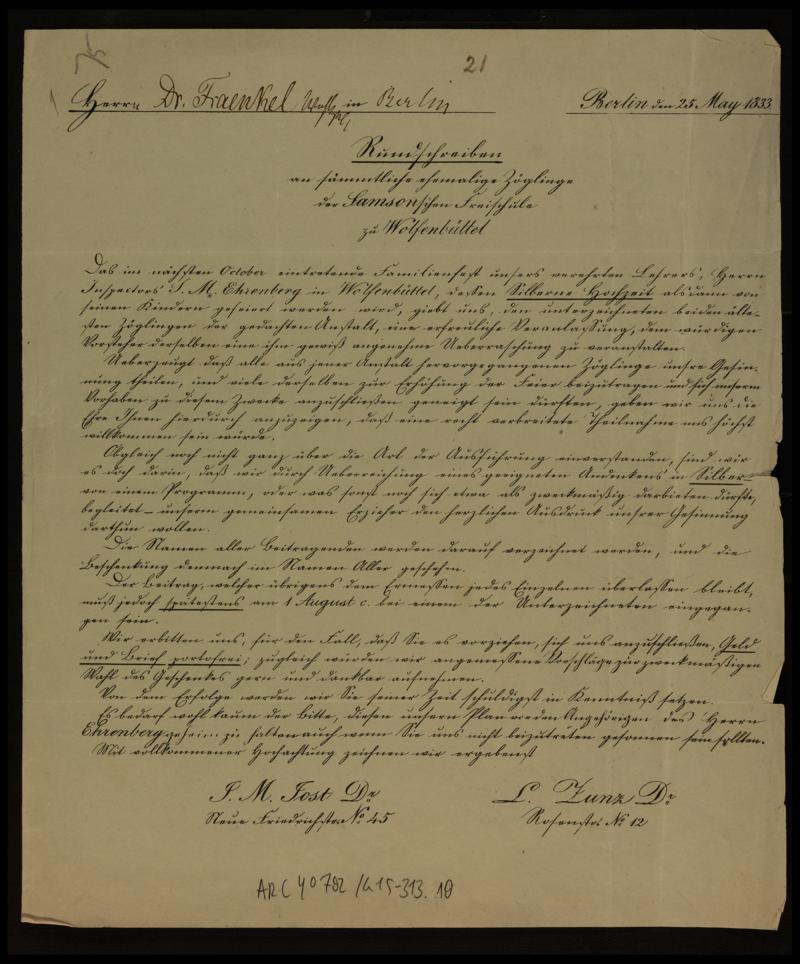 21
Herrn Dr. Fraenkel in Berlin
Berlin den 25 May 1833.
Rundschreiben
an sämmtliche ehemalige Zöglinge
der Samsonschen Freischule
zu Wolfenbüttel
Das im nächsten October eintretende Familienfest unsers verehrten Lehrers, Herrn
Inspectors S. M. Ehrenberg in Wolfenbüttel, dessen Silberne Hochzeit alsdann von
seinen Kindern gefeiert werden wird, giebt uns, den unterzeichneten beiden älte-
sten Zöglingen der gedachten Anstalt, eine erfreuliche Veranlassung, dem würdigen
Vorsteher derselben eine ihm gewiß angenehme Ueberraschung zu veranstalten.
Ueberzeugt daß alle aus jener Anstalt hervorgegangenen Zöglinge unsre Gesin-
nung theilen, und viele derselben zur Erhöhung der Feier beizutragen und sich unserm
Vorhaben zu diesem Zwecke anzuschließen geneigt sein dürften, geben wir uns die
Ehre Ihnen hierdurch anzuzeigen, daß eine recht verbreitete Theilnahme uns höchst
willkommen sein würde.
Obgleich noch nicht ganz über die Art der Ausführung einverstanden, sind wir
es doch darin, daß wir durch Ueberreichung eines geeigneten Andenkens in Silber –
von einem Programm, oder was sonst noch sich etwa als zweckmäßig darbieten dürfte,
begleitet – unserm gemeinsamen Erzieher den herzlichen Ausdruck unsrer Gesinnung
darthun wollen.
Die Namen aller Beitragenden werden darauf verzeichnet werden, und die
Beschenkung demnach im Namen Aller geschehn.
Der Beitrag, welcher übrigens dem Ermessen jedes Einzelnen überlassen bleibt,
muß jedoch spätestens am 1 August c. bei einem der Unterzeichneten eingegan-
gen sein.
Wir erbitten uns, für den Fall, daß Sie es vorziehen, sich uns anzuschließen, Geld
und Brief portofrei; zugleich würden wir angemessene Vorschläge zur zweckmäßigen
Wahl des Geschenkes gern und dankbar aufnehmen.
Von dem Erfolge werden wir Sie seiner Zeit schuldigst in Kenntniß setzen.
Es bedarf wohl kaum der Bitte, diesen unsern Plan vor den Angehörigen des Herrn
Ehrenberg geheim zu halten auch wenn Sie uns nicht beizutreten gesonnen sein sollten.
Mit vollkommener Hochachtung zeichnen wir ergebenst
I. M. Jost Dr
Neue Friedrichstr. No 45
L. Zunz Dr
Rosenstr. No 12
ARC 4o 792 /G15-313. 10